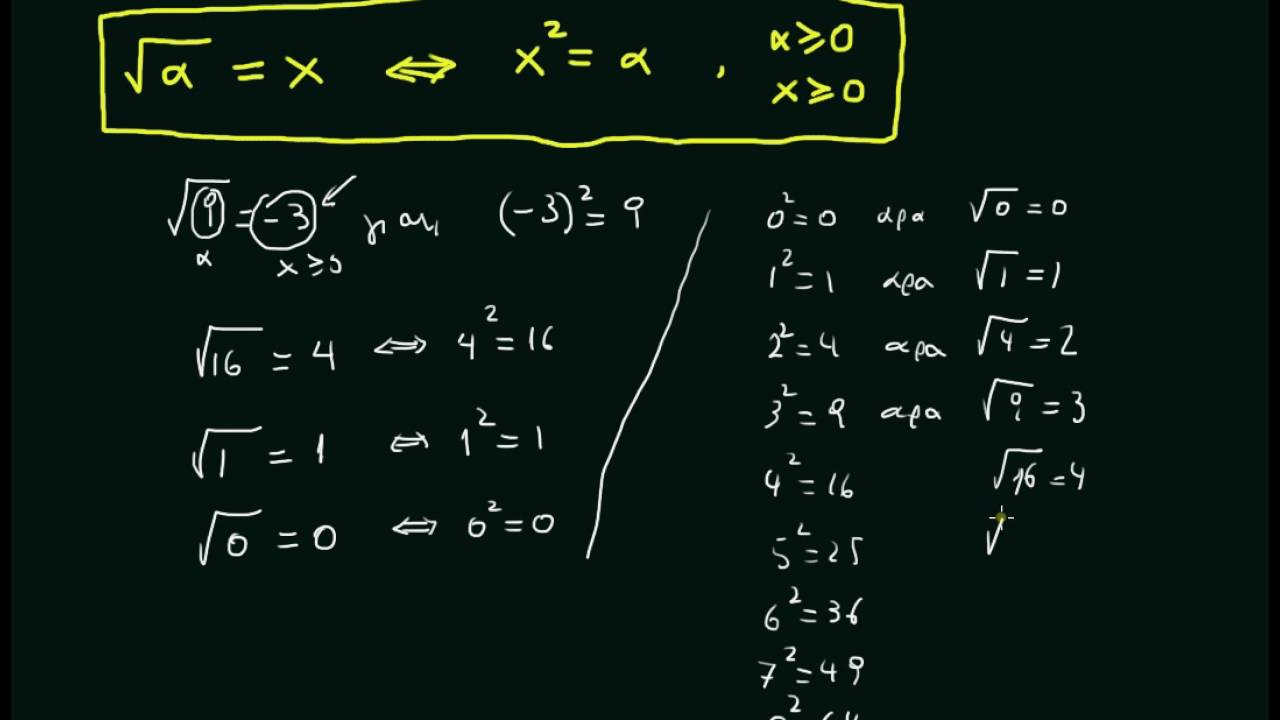 √α = x ⇔ x² = α , α ≥ 0
x ≥ 0
√9 = -3 γιατι (-3)² = 9
α x ≥ 0
√16 = 4 ⇔ 4² = 16
√1 = 1 ⇔ 1² = 1
√0 = 0 ⇔ 0² = 0
0² = 0 αρα √0 = 0
1² = 1 αρα √1 = 1
2² = 4 αρα √4 = 2
3² = 9 αρα √9 = 3
4² = 16 √16 = 4
5² = 25 √
6² = 36
7² = 49